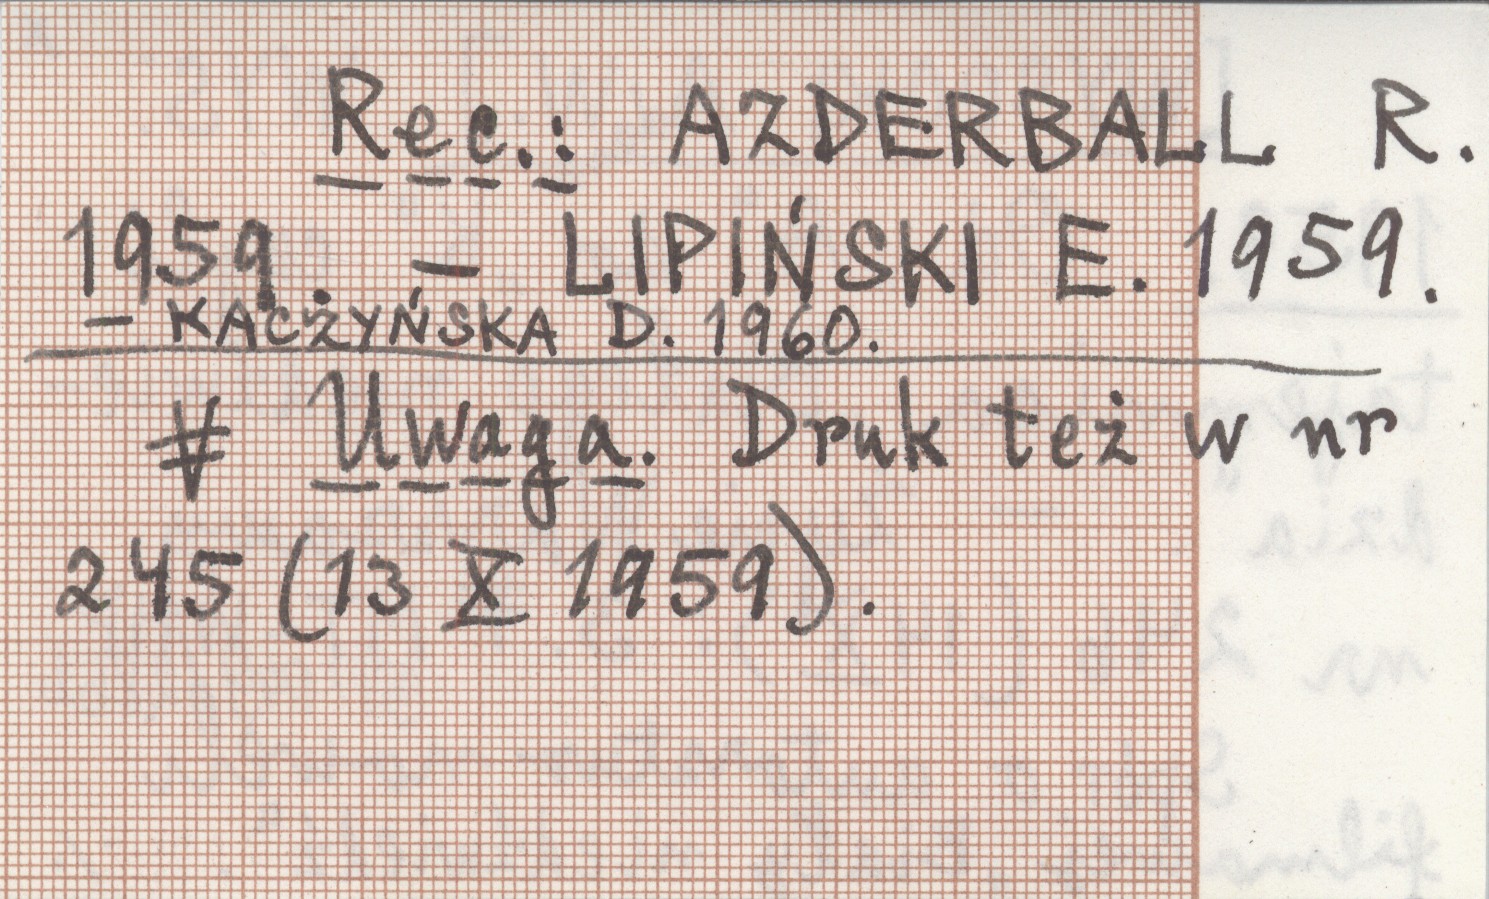 Rec.: AZDERBALL R.
1959. – LIPIŃSKI E. 1959.
– KACŻYŃSKA D. 1960.
Uwaga. Druk też w nr
245 (13 X 1959).